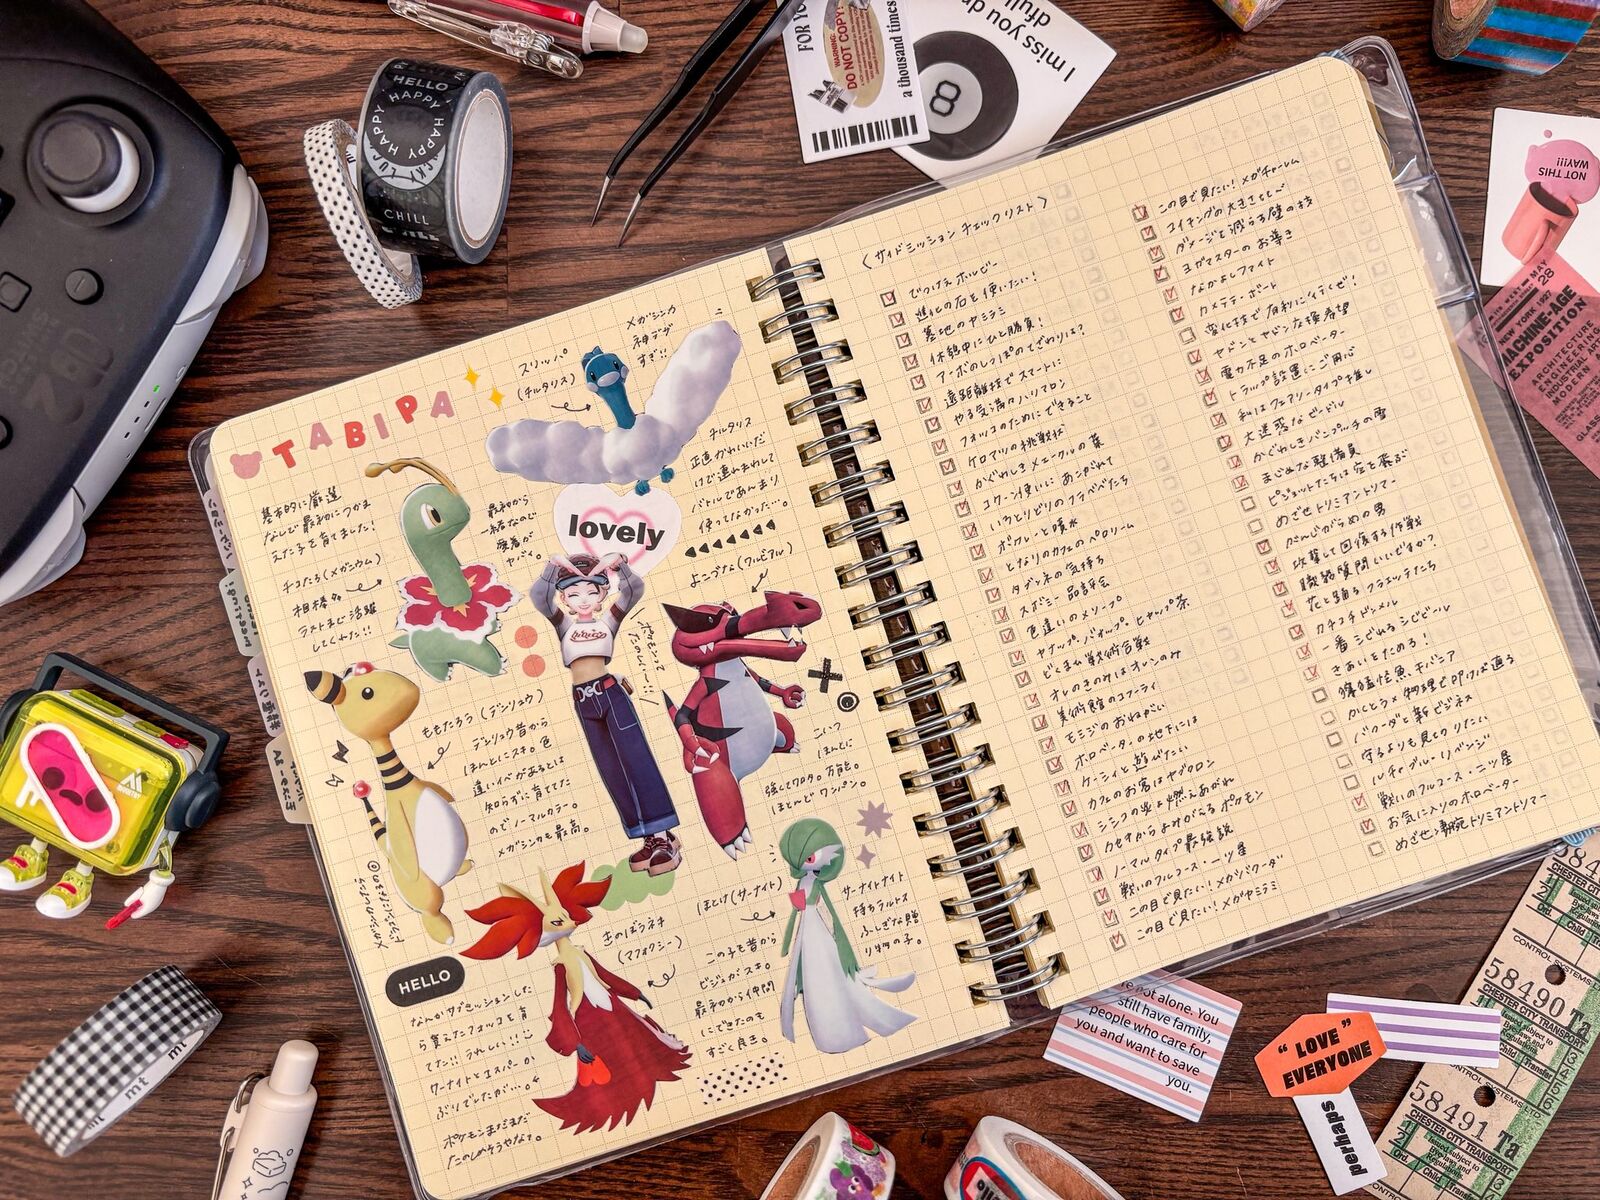 TABIPA
メガシンカ
神デザ
すぎ!!
スリッパ
(チルタリス)
チルタリス
正直かわいいだ
けで連れまわして
バトルであんまり
使ってなかった…。
基本的に厳選
なしで最初につかま
えた子を育てました!
最初から
一緒なので
愛着が
ヤバイ。
lovely
チコたろ(メガニウム)
相棒ポ
ラストまで活躍
してくれた!!
よこづな(ワルビアル)
ポケモンって
たのしい〜!!
ももたろう(デンリュウ)
デンリュウ昔から
ほんとにスキ。色
違いイベがあるとは
知らずに育ててた
のでノーマルカラー。
メガシンカも最高。
こいつ
ほんとに
強くてワロタ。万能。
ほとんどワンパン。
きのぼうネキ
(マフォクシー)
なんかサブミッションした
ら貰えたフォッコを育
てた!!うれしい!!
サーナイトとエスパーか
ぶりでしたが…。
ポケモンまだまだ
たのしめそうやなて。
ほとけ(サーナイト)
この子も昔から
ビジュがスキ。
最初から仲間
にできたのも
すごく良き。
サーナイトナイト
持ちラルトス
ふしぎな贈
り物の子。
HELLO
〈サイドミッション チェックリスト〉
でっけえホルビー
進化の石を使いたい!
墓地のヤミラミ
休憩中にひと勝負!
アーボのしっぽのてざわりは?
遠距離技でスマートに
やる気満々ハリマロン
フォッコのためにできること
ケロマツの挑戦状
かぐわしきメェークルの葉
コクーン使いにあこがれて
いろとりどりのフラベベたち
ポフレーと噴水
となりのカフェのペロリーム
タブンネの気持ち
スボミー品評会
色違いのメリープ
ヤナップ・バオップ・ヒヤップ茶
どくまね戦術合戦
オレのきのみはオレンのみ
美術館のコフーライ
モミジのおねがい
ホロベーターの地下には
ケーシィと遊びたい
カフェのお客はヤブクロン
シシコの炎よ燃えあがれ
カセキからよみがえるポケモン
ノーマルタイプ最強説
戦いのフルコース・一ツ星
この目で見たい!メガジガーダ
この目で見たい!メガヤミラミ
この目で見たい!メガチャーレム
コイキングの大きさくらべ
ダメージを減らす壁の技
ヨガマスターのお導き
なかよしファイト
カメテテ・ボート
変化技で有利に行くぜ!
ヤドンとヤドンな換希望
電力不足のホロベーター
トラップ設置にご用心
私はフェアリータイプ推し
大迷惑なビードル
かぐわしきバンプッチの雪
まじめな整備員
ピジョットたちは空を飛ぶ
めざせトリミアントリマー
がんじがらめの男
攻撃して回復する作戦
職務質問いいですか?
花と踊るフラエッテたち
カチコチドンメル
一番シビれるシビビール
きあいをためろ!
獰猛怪魚キバニア
かくとう×物理で叩けば通る
バクーダと新ビジネス
守るよりも見きりたい
ルチャブル・リベンジ
戦いのフルコース・二ツ星
お気に入りのホロベーター
めざせ凄腕トリミアントリマー
HELLO
HAPPY
HAPPY
LUCKY
CHILL
mt
mt
FOR YO
WARNING:
DO NOT COPY!
a thousand times
I miss you
dfull
8
NOT THIS
WAY!!!
MAY
28
1927
NEW YORK
MACHINE-AGE
EXPOSITION
ARCHITECTURE
ENGINEERING
INDUSTRIAL ART
MODERN
GLASS
not alone. You
still have family,
people who care for
you and want to save
you.
"LOVE"
EVERYONE
perhaps
CHESTER CITY TRANSPORT
CONTROL SYSTEMS
58490 Ta
CHESTER CITY TRANSPORT
CONTROL SYSTEMS LTD
58491 Ta
CHESTER CITY TRANSPORT